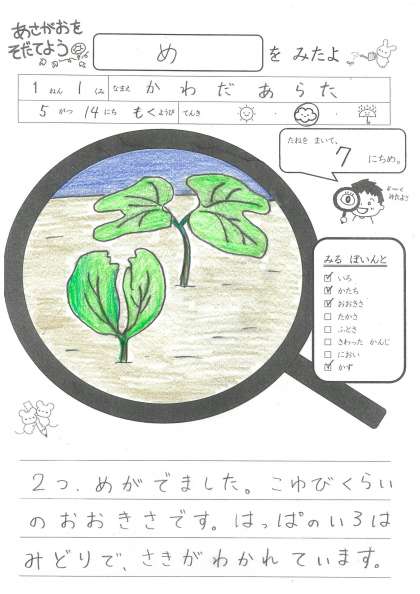 あさがおを
そだてよう
め を みたよ
1 ねん 1 くみ なまえ かわだ あらた
5 がつ 14 にち もく ようび てんき
たねを まいて、
7 にちめ。
よ〜く
みたよ♪
みる ぽいんと
☑ いろ
☑ かたち
☑ おおきさ
☐ たかさ
☐ ふとさ
☐ さわった かんじ
☐ におい
☑ かず
2つ、めがでました。こゆびくらい
のおおきさです。はっぱのいろは
みどりで、さきがわかれています。